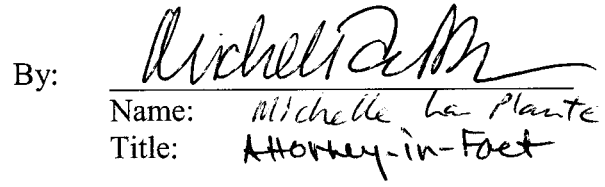 By: Michelle
Name: Michelle La Plante
Title: Attorney-in-Fact